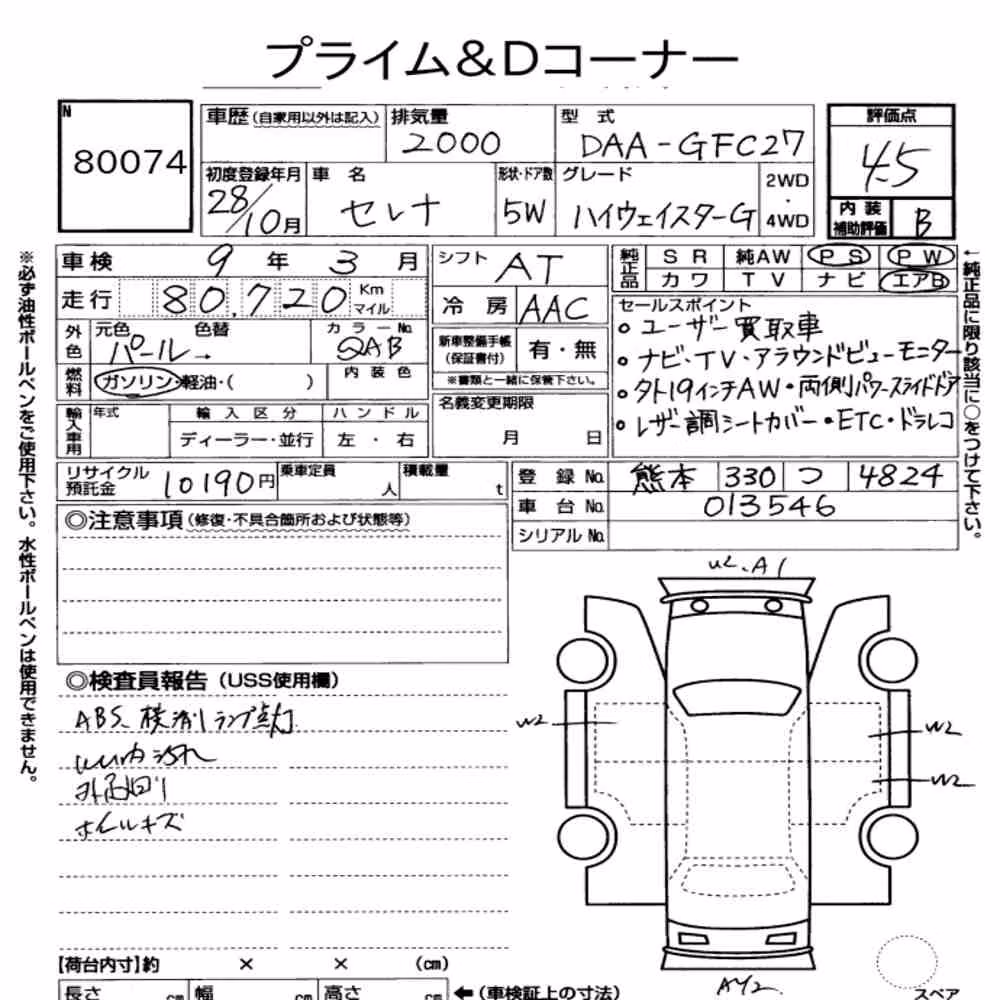 プライム＆Dコーナー
N
80074
車歴 (自家用以外は記入)
排気量
2000
型式
DAA-GFC27
評価点
4.5
内装補助評価
B
初度登録年月
28/10月
車名
セレナ
形状・ドア数
5W
グレード
ハイウェイスターG
2WD・4WD
車検 9年 3月
シフト
AT
純正品
SR 純AW PS PW
カワ TV ナビ エアB
走行 80,720 Km マイル
冷房
AAC
セールスポイント
○ユーザー買取車
○ナビ・TV・アラウンドビューモニター
○外19インチAW・両側パワースライドドア
○レザー調シートカバー・ETC・ドラレコ
外色
元色 色替
パール→
カラーNo.
QAB
新車整備手帳(保証書付)
有・無
※書類と一緒に保管下さい。
燃料
ガソリン・軽油・( )
内装色
名義変更期限
月 日
輸入車用
年式
輸入区分
ディーラー・並行
ハンドル
左・右
リサイクル預託金
10190円
乗車定員
人
積載量
t
登録No. 熊本 330 つ 4824
車台No. 013546
シリアルNo.
◎注意事項(修復・不具合箇所および状態等)
◎検査員報告 (USS使用欄)
ランプ点灯
内汚れ
ホイルキズ
U2、A1
W2
W2
W2
AY2
【荷台内寸】約 × × (cm)
長さ cm 幅 cm 高さ cm ←(車検証上の寸法)
スペア
※必ず油性ボールペンをご使用下さい。水性ボールペンは使用できません。
←純正品に限り該当に○をつけて下さい。